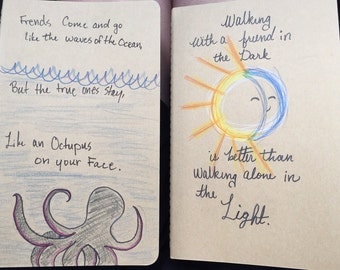 Frends Come and go
like the waves of the Ocean,
But the true ones stay,
Like an Octupus
on your Face.
Walking
With a friend in
the Dark
is better than
Walking alone in
the
Light.